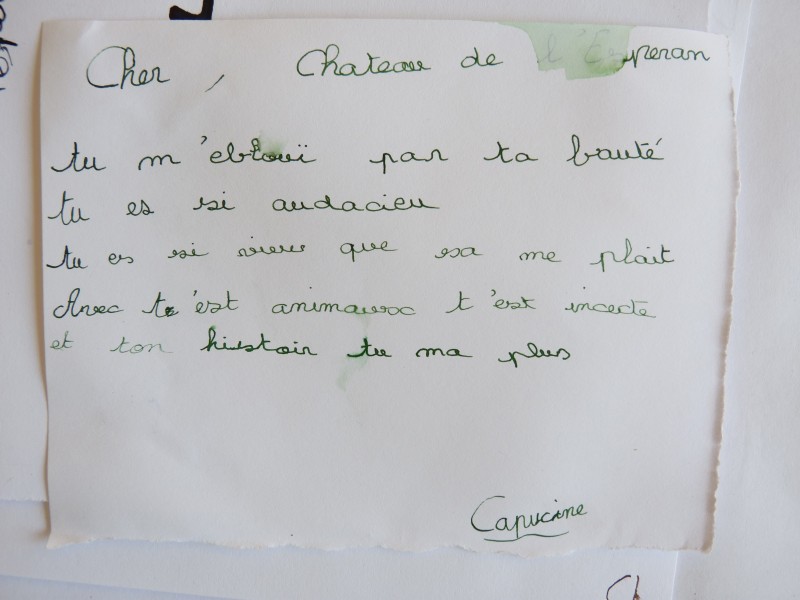 Cher , Chateau de l'Emperan
tu m'eblouï par ta bauté
tu es si audacieu
tu es si vieux que sa me plait
Avec t'est animauxx t'est incecte
et ton histoir tu ma plus
Capucine